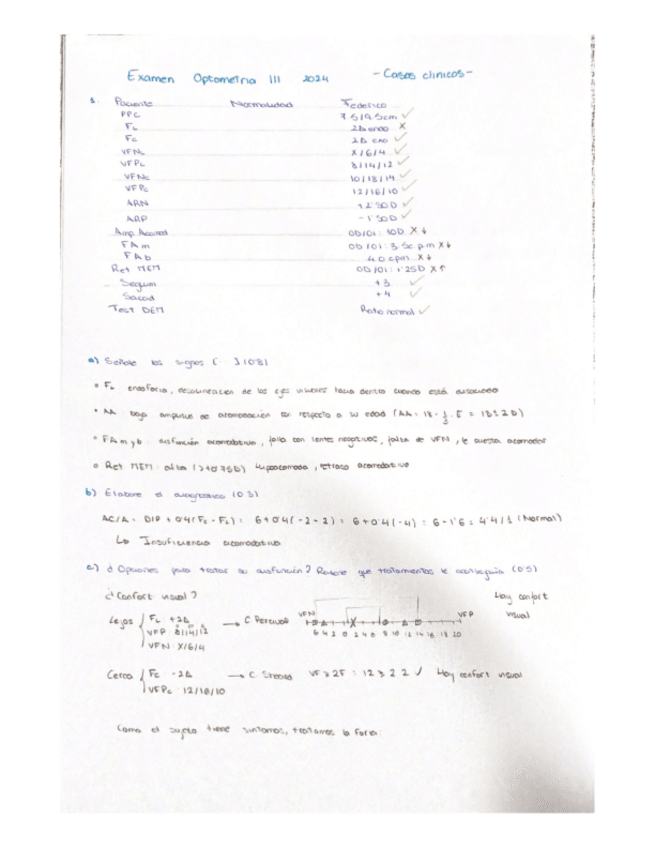 Examen Optometria III 2024 - Casos clinicos -
1. Paciente Normalidad Federico
PPC 7'5/9'5cm ✓
FL 2Δ endo X
FC 2Δ exo ✓
VFNL X/6/4 ✓
VFPL 8/14/12 ✓
VFNC 10/18/14 ✓
VFPC 12/16/10 ✓
ARN +2'50D ✓
ARP -1'50D ✓
Amp. Acomod OD/OI: 10D X↓
FAm OD/OI: 3'5c.p.m X↓
FAb 4.0 cpm X↓
Ret MEM OD/OI: 1'25D X↑
Seguim +3 ✓
Sacad +4 ✓
Test DEM Ratio normal ✓
a) Señale los signos (0'8)
• FL endoforia, desalineación de los ejes visuales hacia dentro cuando está disociado
• AA: baja amplitud de acomodación con respecto a su edad
• FAm y b: disfunción acomodativa, falla con lentes negativas, falta de VFN, le cuesta acomodar
• Ret MEM: alta (>+0'75D) hipoacomoda, retraso acomodativo
b) Elabore el diagnóstico (0'3)
AC/A = DIP + 0'4(FC - FL) = 6+0'4(-2-2) = 6+0'4(-4) = 6-1'6 = 4'4/1 (Normal)
↳ Insuficiencia acomodativa
c) ¿Opciones para tratar su disfunción? Razone que tratamientos le aconsejaría (0'5)
¿Confort visual? Hay confort
visual
VFN VFP
Lejos FL +2Δ → C. Percival
VFP 8/14/12
VFN X/6/4
6 4 2 0 2 4 6 8 10 12 14 16 18 20
Cerca FC -2Δ → C. Sheard VF ≥ 2F = 12 ≥ 2·2 ✓ Hay confort visual
VFPC 12/16/10
Como el sujeto tiene síntomas, tratamos la foria: